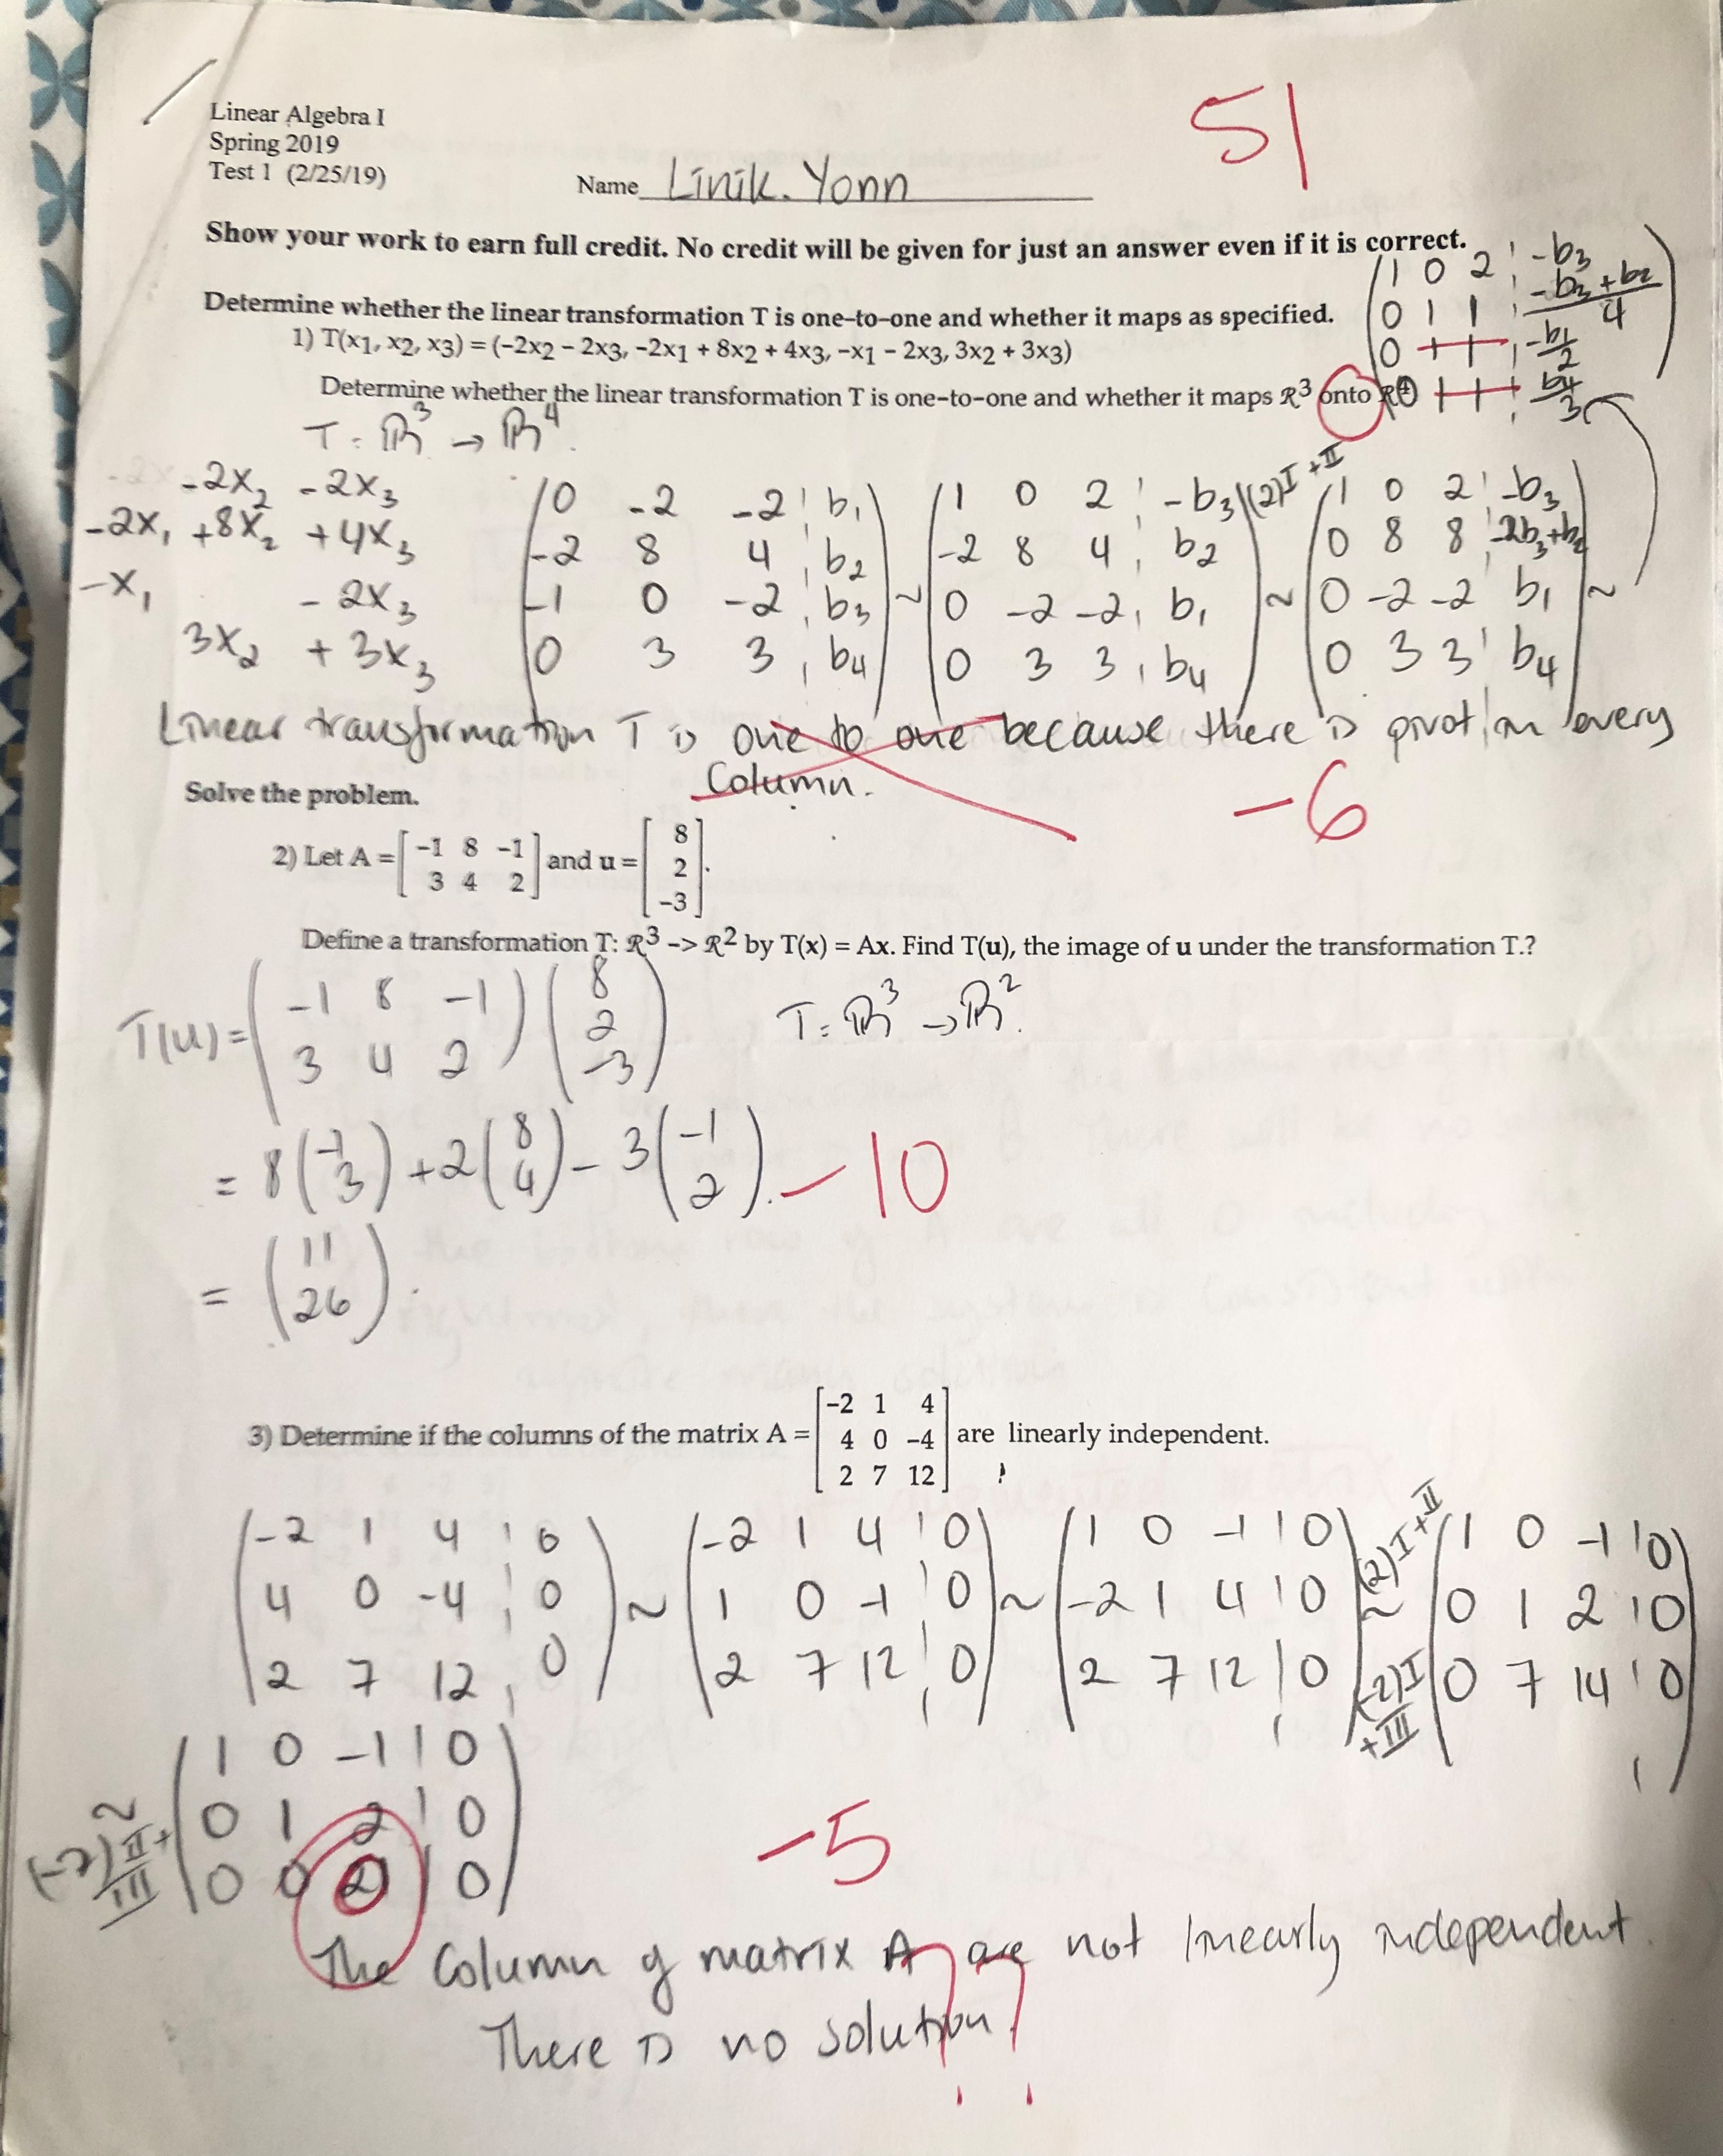 Linear Algebra I
Spring 2019
Test 1 (2/25/19)
Name Linik. Yonn
51
Show your work to earn full credit. No credit will be given for just an answer even if it is correct.
Determine whether the linear transformation T is one-to-one and whether it maps as specified.
1) T(x1, x2, x3) = (-2x2 - 2x3, -2x1 + 8x2 + 4x3, -x1 - 2x3, 3x2 + 3x3)
Determine whether the linear transformation T is one-to-one and whether it maps ℛ3 onto ℛ4
T: ℝ³ → ℝ⁴.
-2x₂ -2x₃
-2x₁ +8x₂ +4x₃
-x₁ - 2x₃
3x₂ + 3x₃
0 -2 -2 | b₁
-2 8 4 | b₂
-1 0 -2 | b₃
0 3 3 | b₄
~
1 0 2 | -b₃
-2 8 4 | b₂
0 -2 -2 | b₁
0 3 3 | b₄
(2)I+II
~
1 0 2 | -b₃
0 8 8 | -2b₃+b₂
0 -2 -2 | b₁
0 3 3 | b₄
~
1 0 2 | -b₃
0 1 1 | -b₃+b₂/4
0 1 1 | -b₁/2
0 1 1 | b₄/3
Linear transformation T is one to one because there is pivot in every
Column.
-6
Solve the problem.
2) Let A = [-1 8 -1
3 4 2] and u = [8
2
-3].
Define a transformation T: ℛ3 -> ℛ2 by T(x) = Ax. Find T(u), the image of u under the transformation T.?
T(u) = (-1 8 -1
3 4 2) (8
2
-3)
T: ℝ³ → ℝ².
= 8(-1
3) + 2(8
4) - 3(-1
2).
-10
= (11
26).
3) Determine if the columns of the matrix A = [-2 1 4
4 0 -4
2 7 12] are linearly independent.
-2 1 4 | 0
4 0 -4 | 0
2 7 12 | 0
~
-2 1 4 | 0
1 0 -1 | 0
2 7 12 | 0
~
1 0 -1 | 0
-2 1 4 | 0
2 7 12 | 0
(2)I+II
~
(-2)I
+III
1 0 -1 | 0
0 1 2 | 0
0 7 14 | 0
~
(-7)II+
III
1 0 -1 | 0
0 1 2 | 0
0 0 2 | 0
-5
The Column of matrix A are not linearly independent.
There is no solution.
??